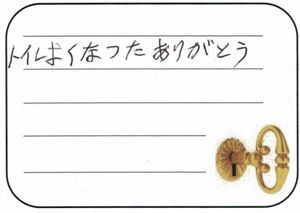 トイレよくなつたありがとう